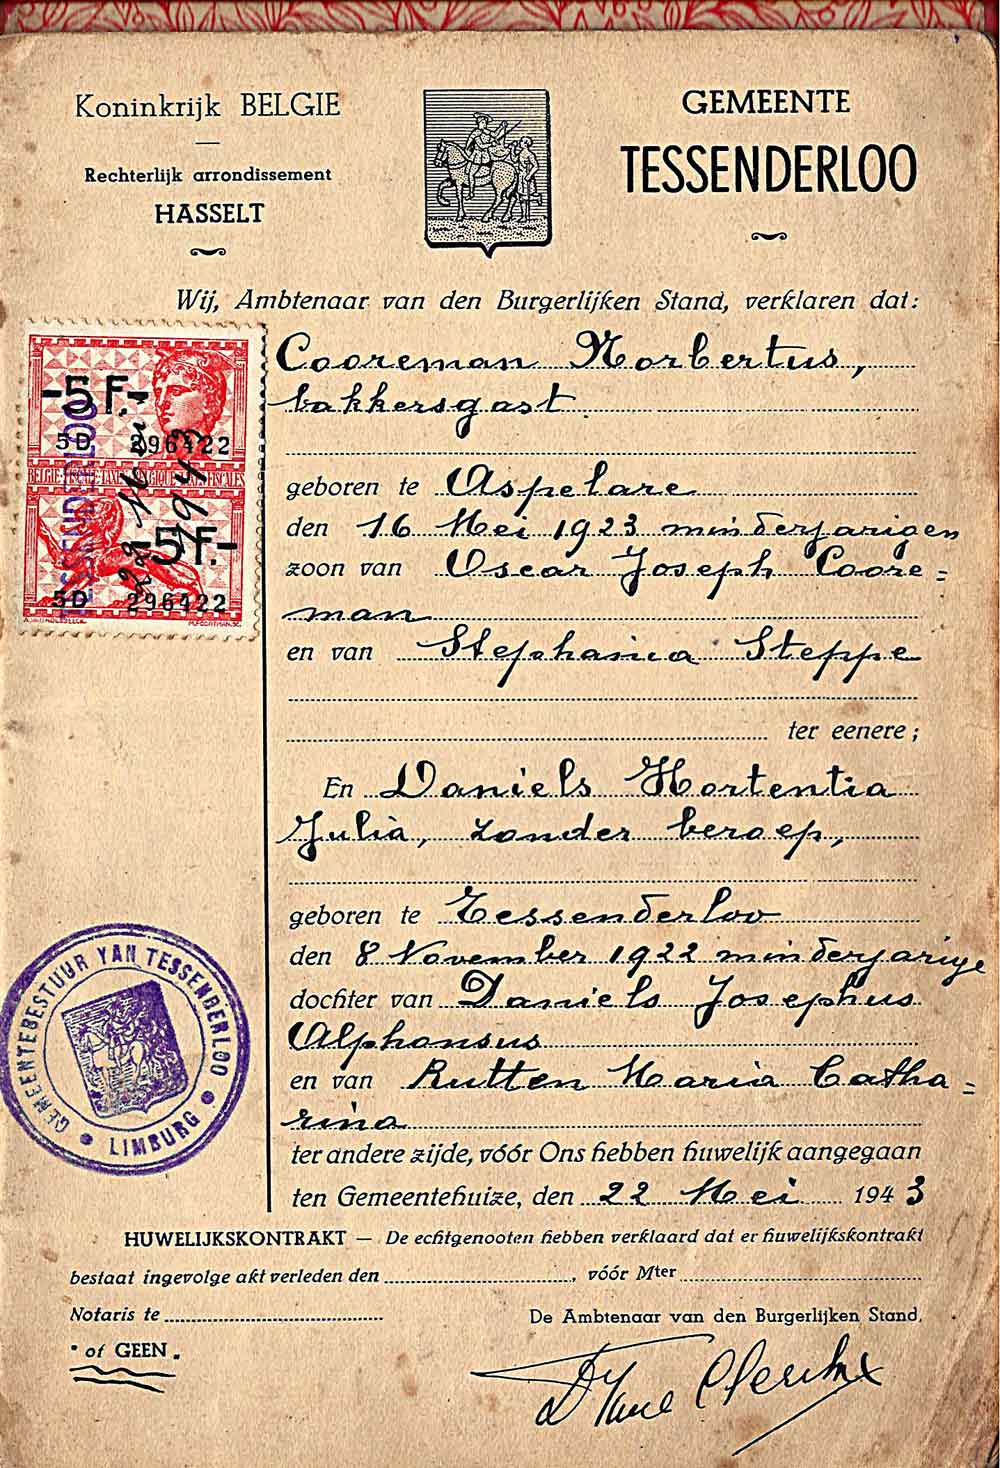 Koninkrijk BELGIE
Rechterlijk arrondissement
HASSELT
GEMEENTE
TESSENDERLOO
Wij, Ambtenaar van den Burgerlijken Stand, verklaren dat:
-5 F.-
5D 296422
BELGIE
FISCALES
-5 F.-
5D 296422
TESSENDERLOO
22 Mei 1943
Cooreman Norbertus,
bakkersgast
geboren te Aspelare
den 16 Mei 1923 minderjarigen
zoon van Oscar Joseph Coore=
man
en van Stephania Steppe
ter eenere;
En Daniels Hortentia
Julia, zonder beroep,
geboren te Tessenderloo
den 8 November 1922 minderjarige
dochter van Daniels Josephus
Alphonsus
en van Rutten Maria Catha=
rina
ter andere zijde, vóór Ons hebben huwelijk aangegaan
ten Gemeentehuize, den 22 Mei 1943
GEMEENTEBESTUUR VAN TESSENDERLOO
LIMBURG
HUWELIJKSKONTRAKT — De echtgenooten hebben verklaard dat er huwelijkskontrakt
bestaat ingevolge akt verleden den , vóór Mter
Notaris te
De Ambtenaar van den Burgerlijken Stand,
" of GEEN "